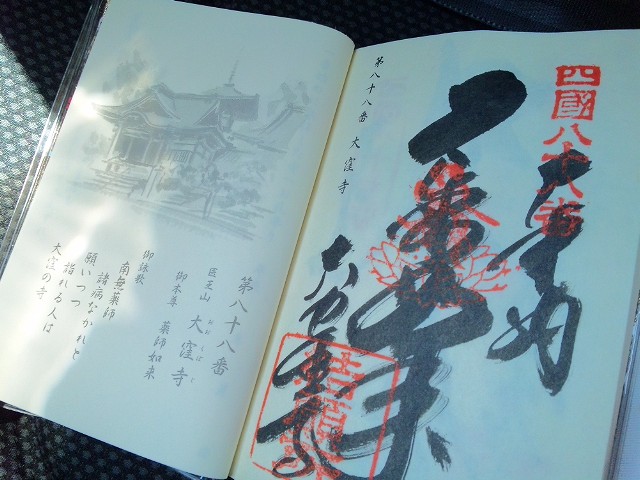 四國八十八
奉納
大窪寺
第八十八番 大窪寺
第八十八番
医王山 大窪寺
おおくぼじ
御本尊 薬師如来
御詠歌
南無薬師
諸病なかれと
願いつつ
詣れる人は
大窪の寺